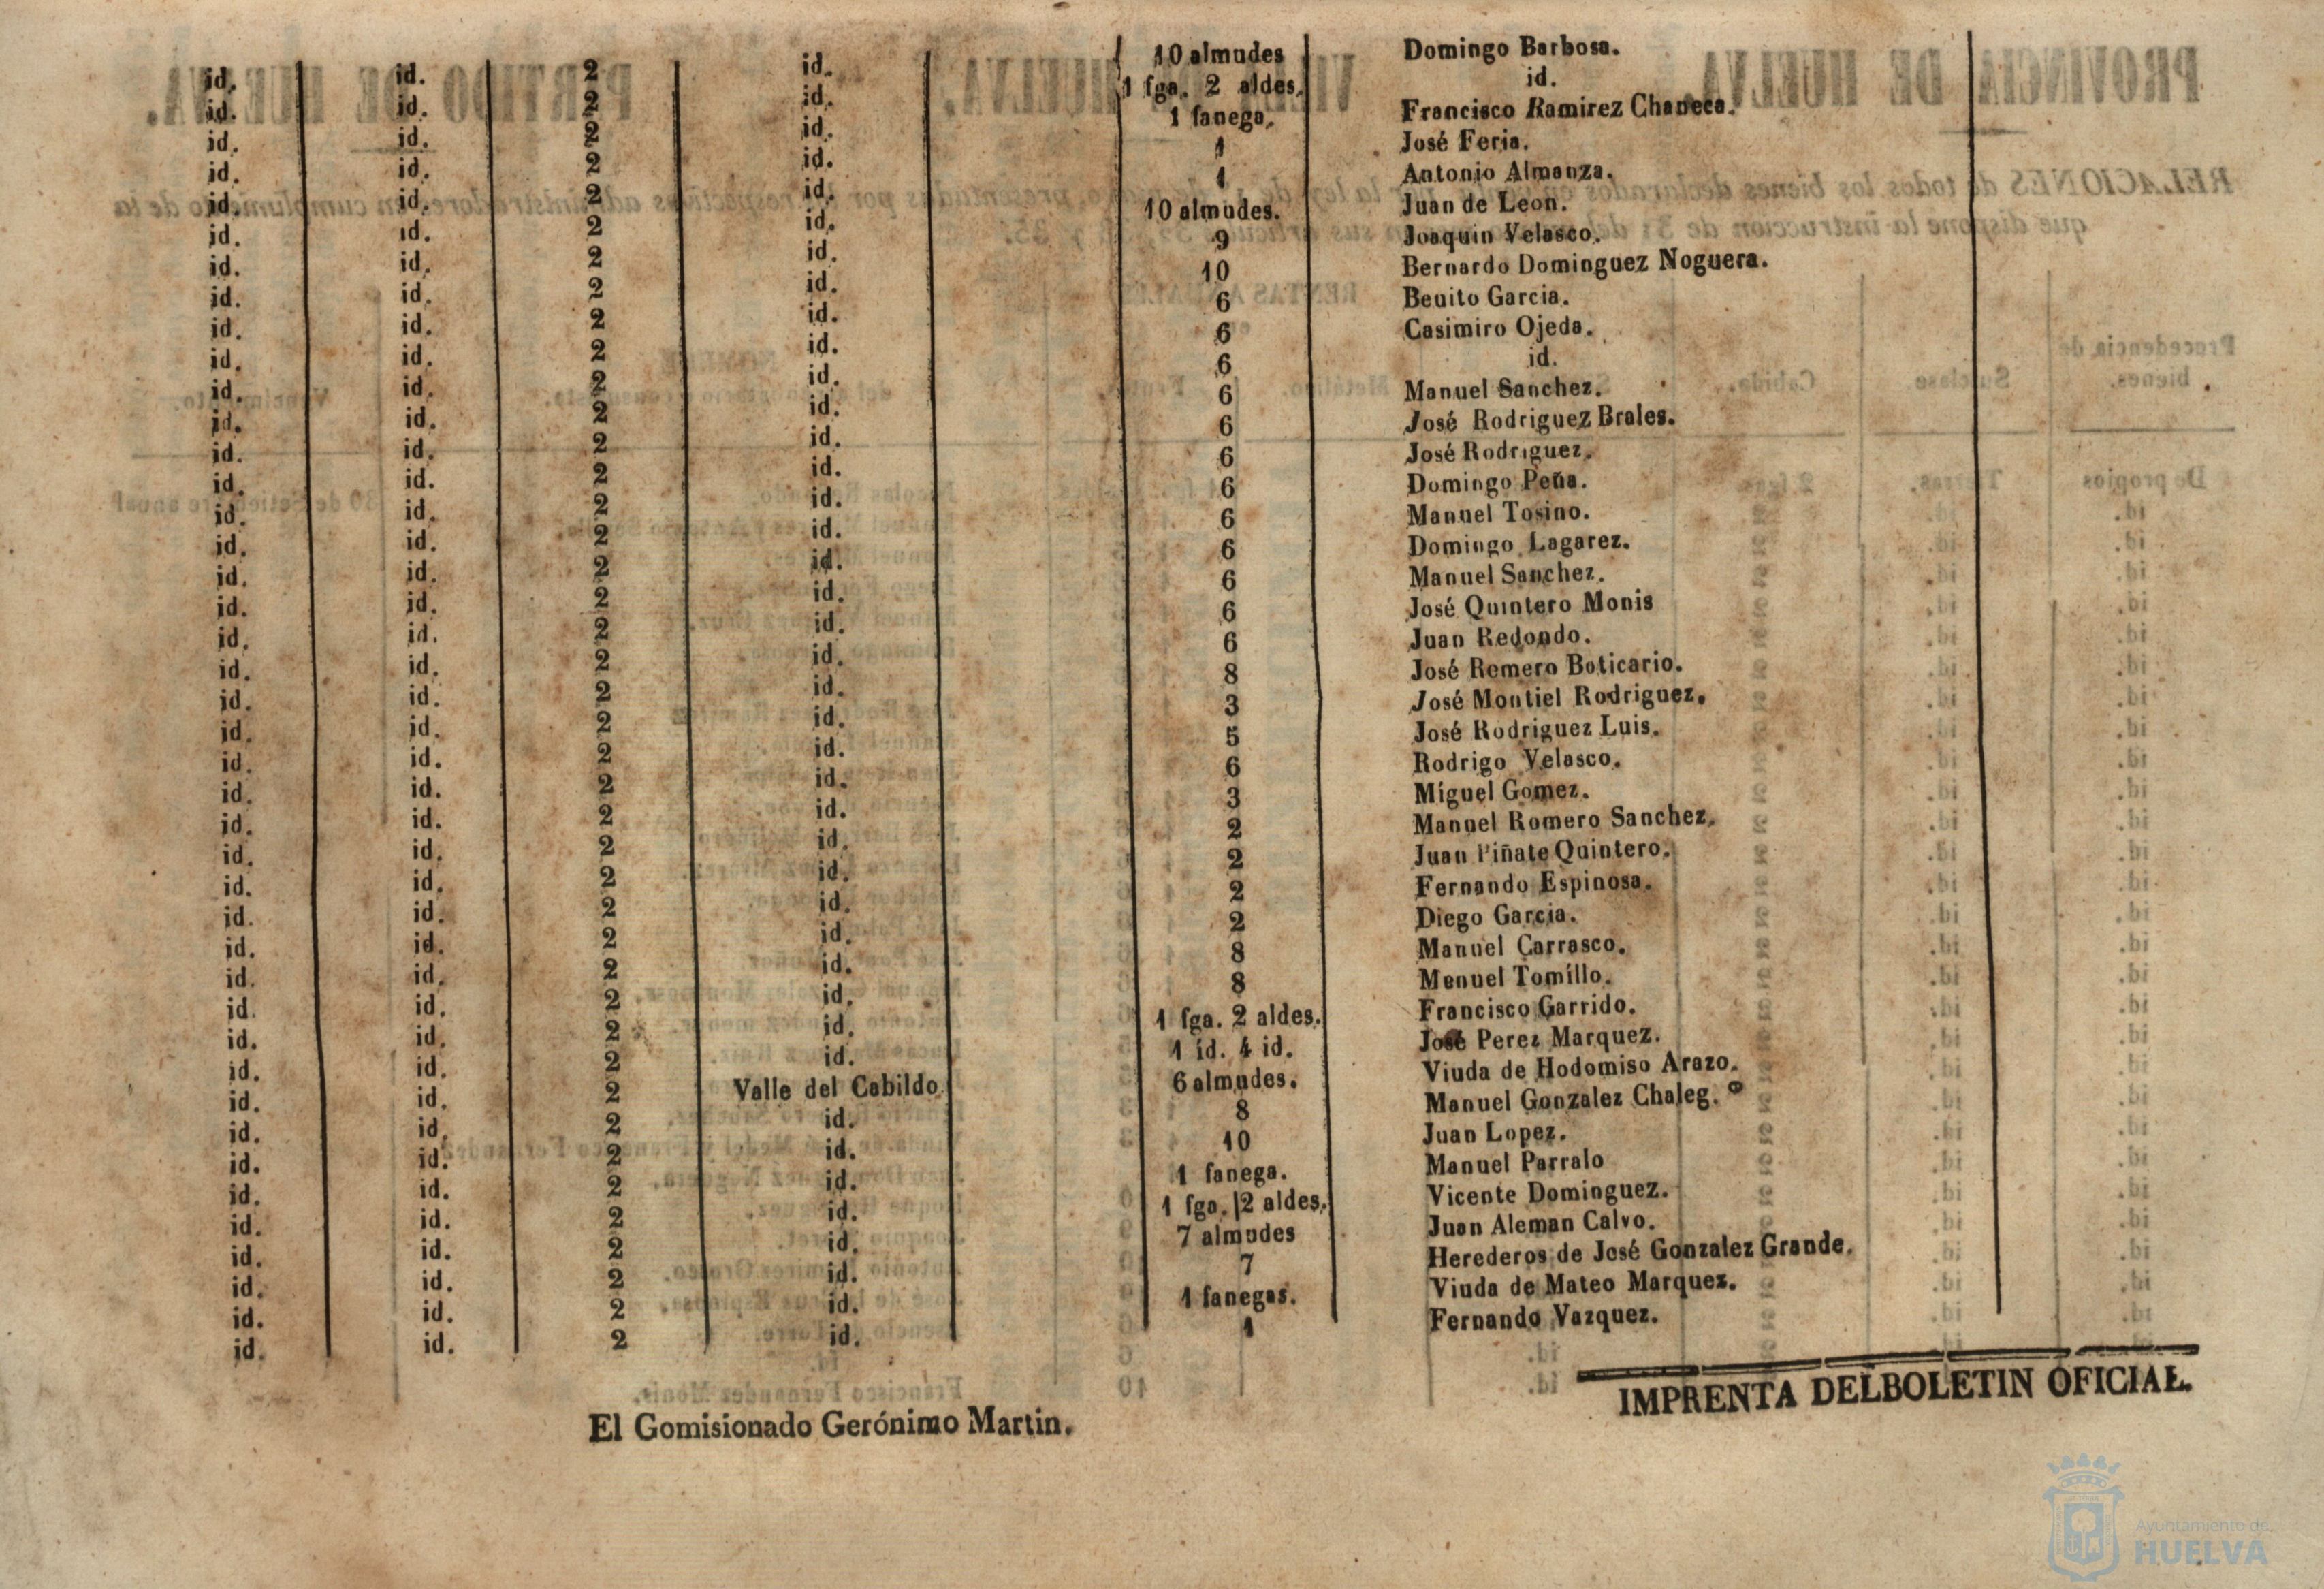 id. id. 2 id. 10 almudes Domingo Barbosa.
id. id. 2 id. 1 fga. 2 aldes. id.
id. id. 2 id. 1 fanega. Francisco Ramirez Chaneca.
id. id. 2 id. 1 José Feria.
id. id. 2 id. 1 Antonio Almanza.
id. id. 2 id. 10 almudes. Juan de Leon.
id. id. 2 id. 9 Joaquin Velasco.
id. id. 2 id. 10 Bernardo Dominguez Noguera.
id. id. 2 id. 6 Beuito Garcia.
id. id. 2 id. 6 Casimiro Ojeda.
id. id. 2 id. 6 id.
id. id. 2 id. 6 Manuel Sanchez.
id. id. 2 id. 6 José Rodriguez Brales.
id. id. 2 id. 6 José Rodriguez.
id. id. 2 id. 6 Domingo Peña.
id. id. 2 id. 6 Manuel Tosino.
id. id. 2 id. 6 Domingo Lagarez.
id. id. 2 id. 6 Manuel Sanchez.
id. id. 2 id. 6 José Quintero Monis
id. id. 2 id. 6 Juan Redondo.
id. id. 2 id. 8 José Romero Boticario.
id. id. 2 id. 3 José Montiel Rodriguez.
id. id. 2 id. 5 José Rodriguez Luis.
id. id. 2 id. 6 Rodrigo Velasco.
id. id. 2 id. 3 Miguel Gomez.
id. id. 2 id. 2 Manuel Romero Sanchez.
id. id. 2 id. 2 Juan Piñate Quintero.
id. id. 2 id. 2 Fernando Espinosa.
id. id. 2 id. 2 Diego Garcia.
id. id. 2 id. 8 Manuel Carrasco.
id. id. 2 id. 8 Menuel Tomillo.
id. id. 2 id. 1 fga. 2 aldes. Francisco Garrido.
id. id. 2 id. 1 id. 4 id. José Perez Marquez.
id. id. 2 Valle del Cabildo 6 almudes. Viuda de Hodomiso Arazo.
id. id. 2 id. 8 Manuel Gonzalez Chaleg.
id. id. 2 id. 10 Juan Lopez.
id. id. 2 id. 1 fanega. Manuel Parralo
id. id. 2 id. 1 fga. 2 aldes. Vicente Dominguez.
id. id. 2 id. 7 almudes Juan Aleman Calvo.
id. id. 2 id. 7 Herederos de José Gonzalez Grande.
id. id. 2 id. 1 fanegas. Viuda de Mateo Marquez.
id. id. 2 id. 1 Fernando Vazquez.
El Gomisionado Gerónimo Martin.
IMPRENTA DEL BOLETIN OFICIAL.
Ayuntamiento de
HUELVA